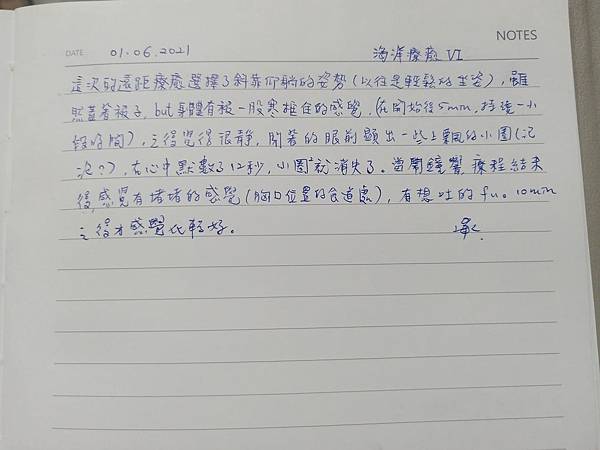 NOTES
DATE 01.06.2021 海洋療癒 VI
這次的遠距療癒選擇了斜靠仰躺的姿勢(以往是輕鬆的坐姿),雖
然蓋著被子,but身體有被一股寒框住的感覺,(在開始後5min,持續一小
段時間),之後覺得很靜,閉著的眼前顯出一些上飄的小圈(泡
泡?),在心中默數了12秒,小圈才消失了。當鬧鐘響療程結束
後,感覺有堵堵的感覺(胸口位置的食道處),有想吐的fu。10min
之後才感覺比較好。